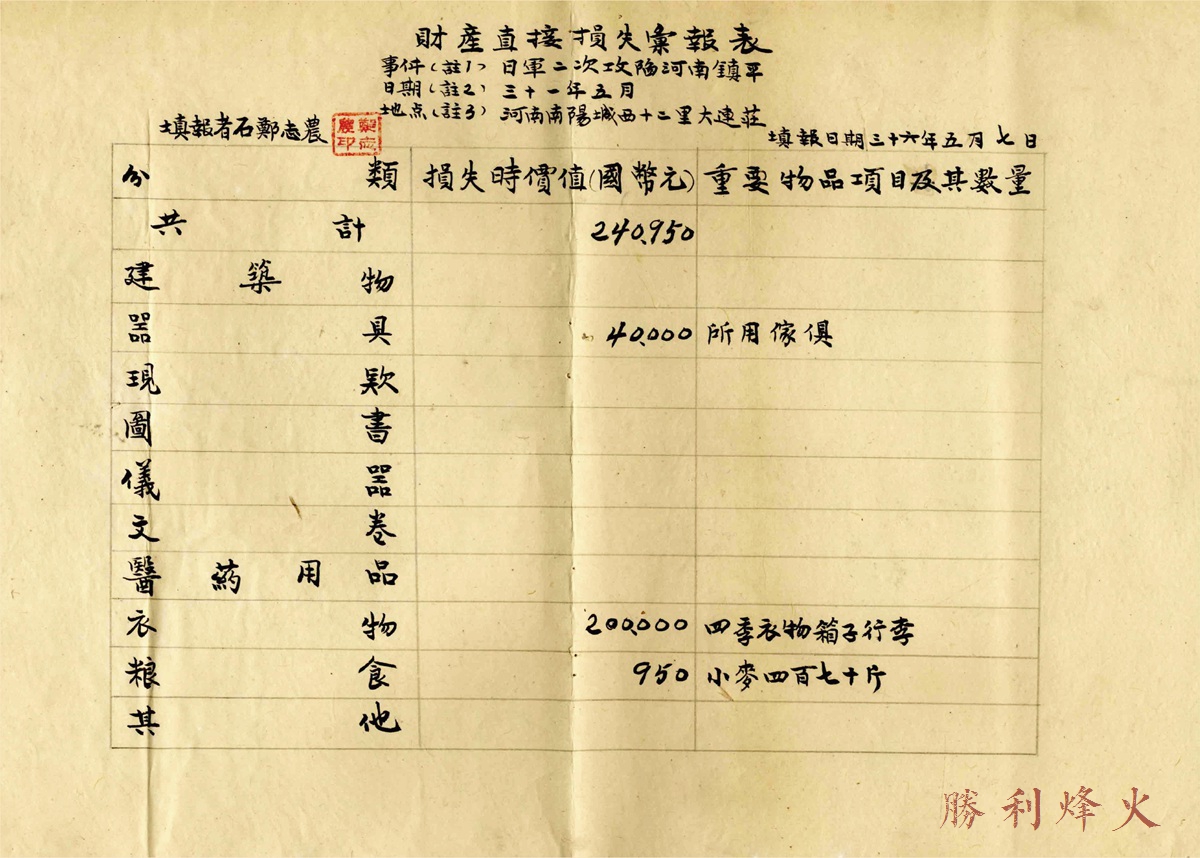 財產直接損失彙報表
事件(註1) 日軍二次攻陷河南鎮平
日期(註2) 三十一年五月
地点(註3) 河南南陽城西十二里大連莊
填報者石鄭志農
鄭志農印
填報日期三十六年五月七日
分類 損失時價值(國幣元) 重要物品項目及其數量
共計 240,950
建築物
器具 40,000 所用傢俱
現款
圖書
儀器
文卷
醫藥用品
衣物 200,000 四季衣物箱子行李
粮食 950 小麥四百七十斤
其他
勝利烽火